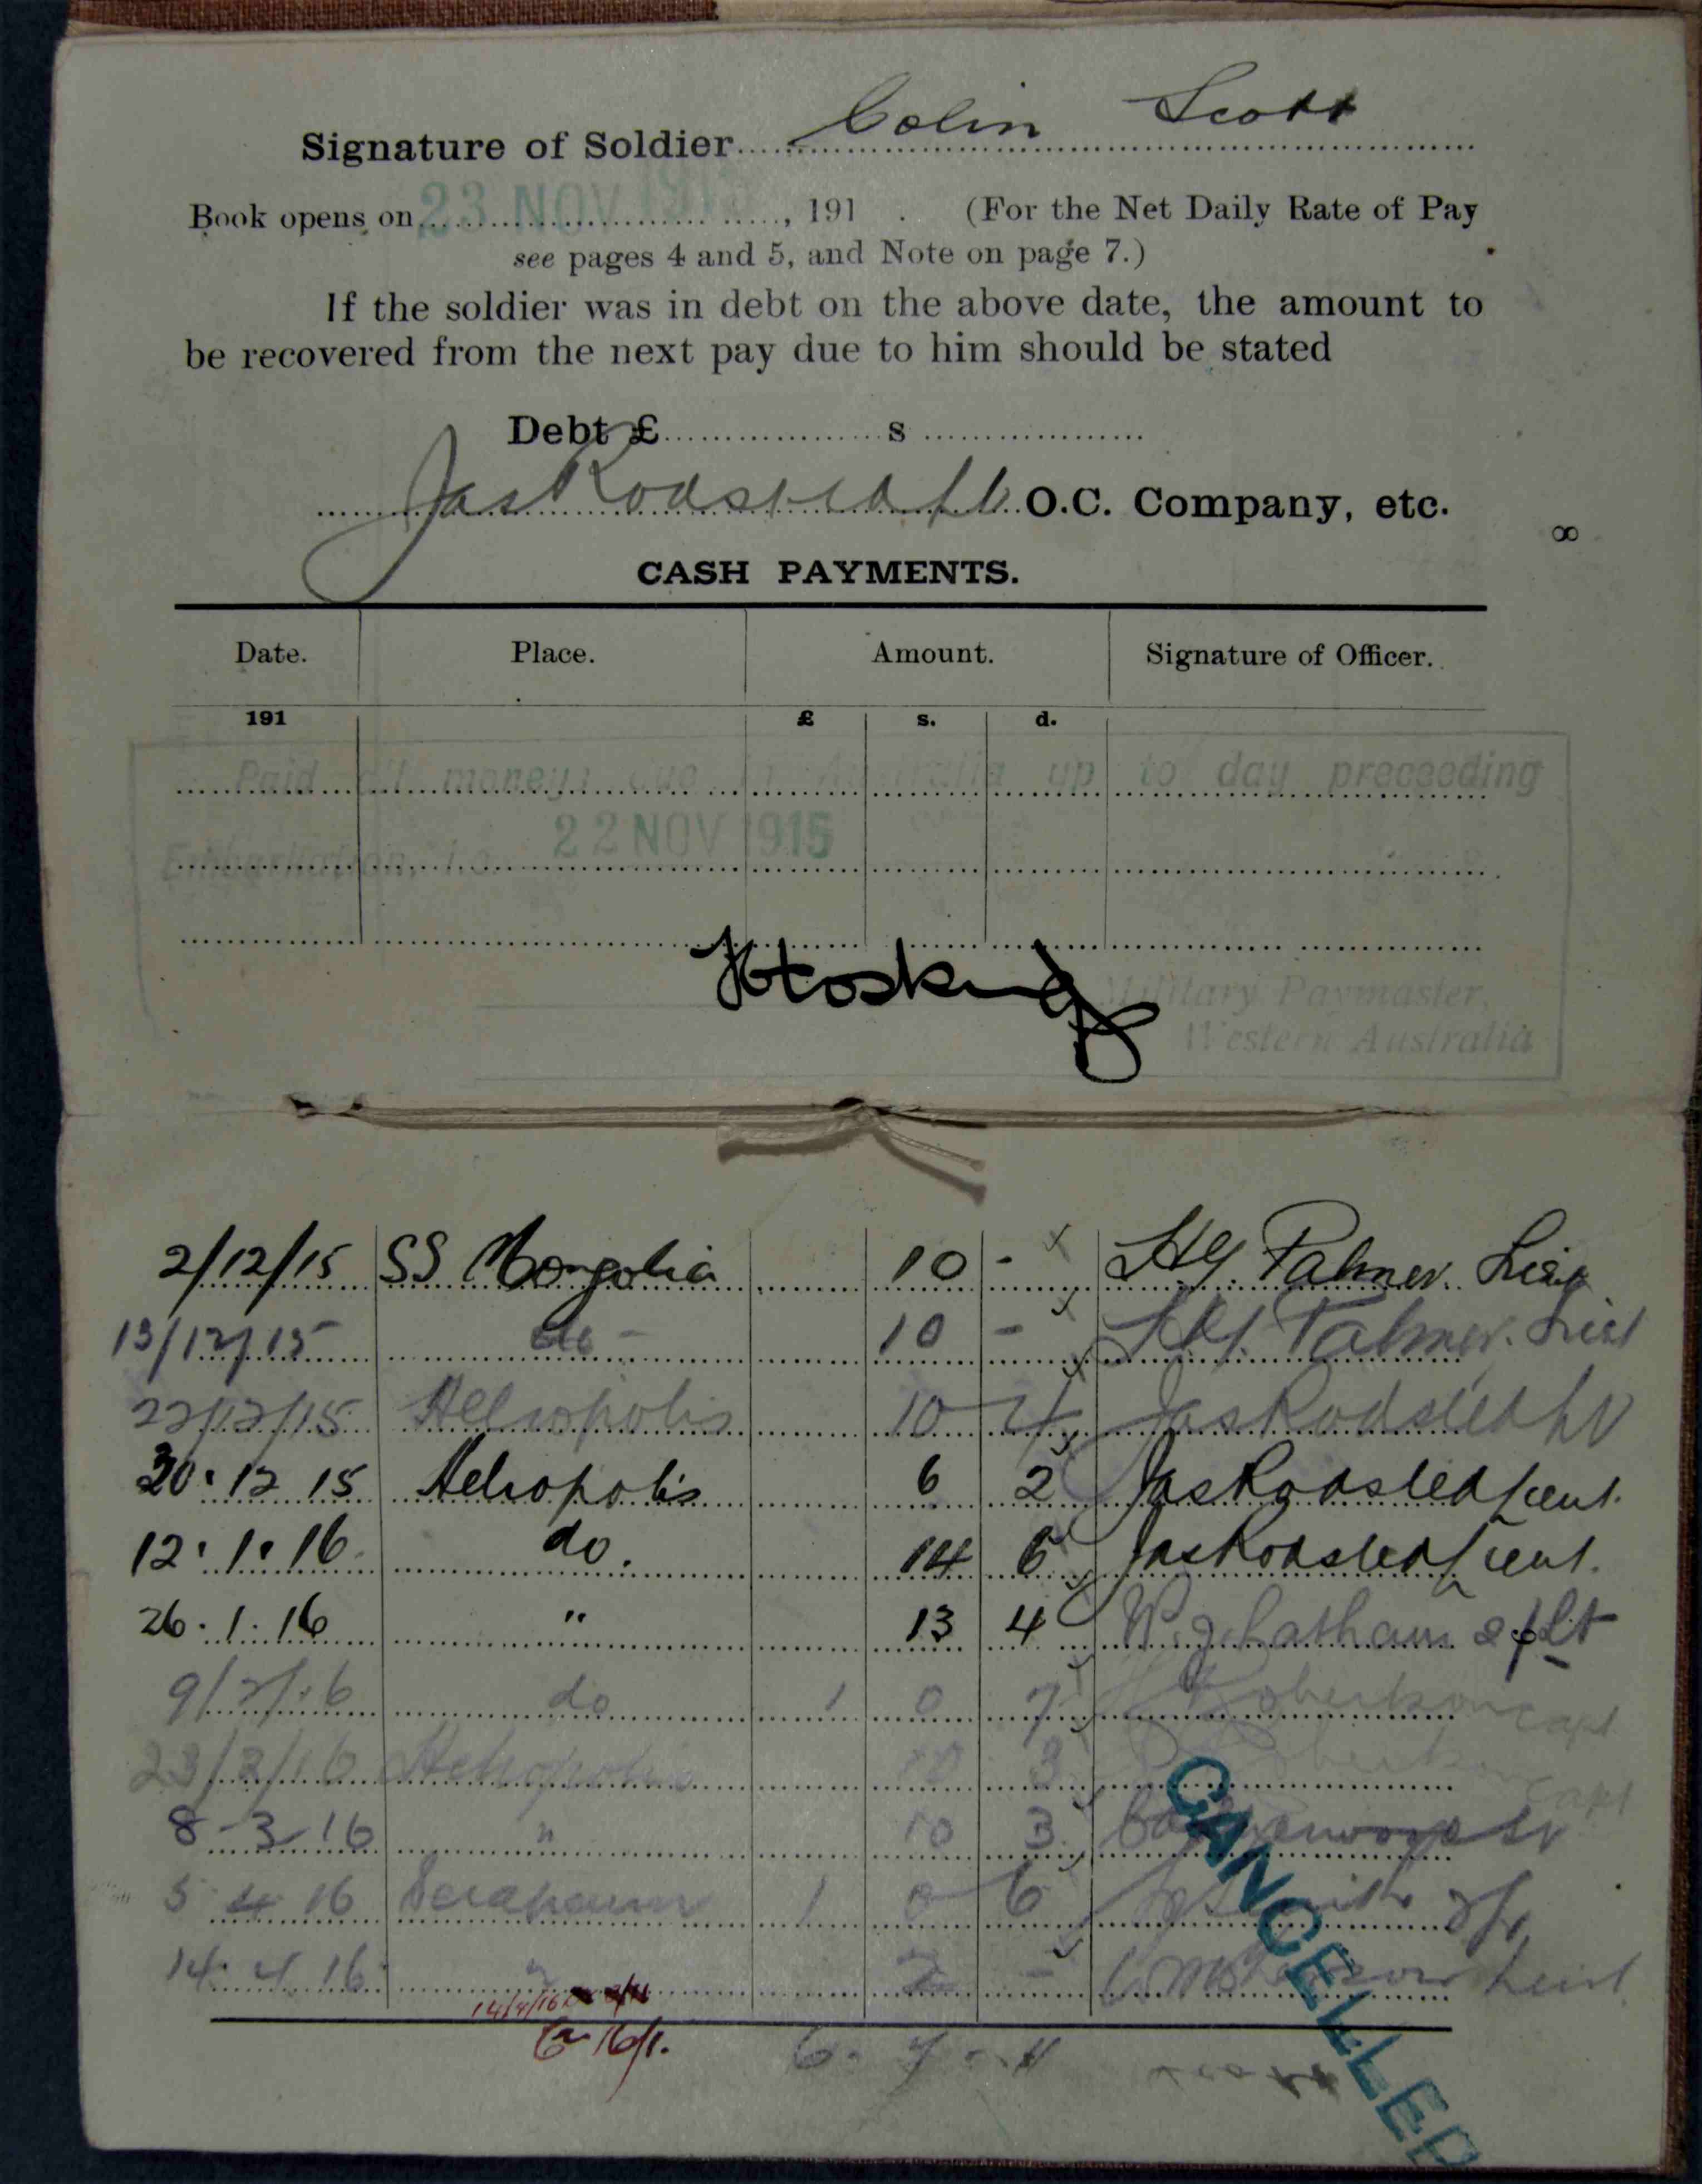 Signature of Soldier Colin Scott
Book opens on 23 NOV 1915, 191 . (For the Net Daily Rate of Pay
see pages 4 and 5, and Note on page 7.)
If the soldier was in debt on the above date, the amount to
be recovered from the next pay due to him should be stated
Debt £ s
O.C. Company, etc.
8
CASH PAYMENTS.
Date. Place. Amount. Signature of Officer.
191 £ s. d.
Paid all moneys due in Australia up to day preceeding
Embarkation, i.e. 22 NOV 1915
Military Paymaster,
Western Australia
2/12/15 SS Mongolia 10 - Palmer. Lieut
13/12/15 do - 10 - Palmer. Lieut
22/12/15 Heliopolis 10 4
30.12 15 Heliopolis 6 2 Lieut.
12.1.16 do. 14 6 Lieut.
26.1.16 " 13 4 Latham 2/Lt
9/2/16 do 1 0 7 Robertson Capt
23/2/16 Heliopolis 10 3 Robertson Capt
8-3-16 " 10 3
5 4 16 Serapeum 1 0 6 Smith
14.4.16 " 2 - Lieut
14/4/16
6. 7. 11
CANCELLED